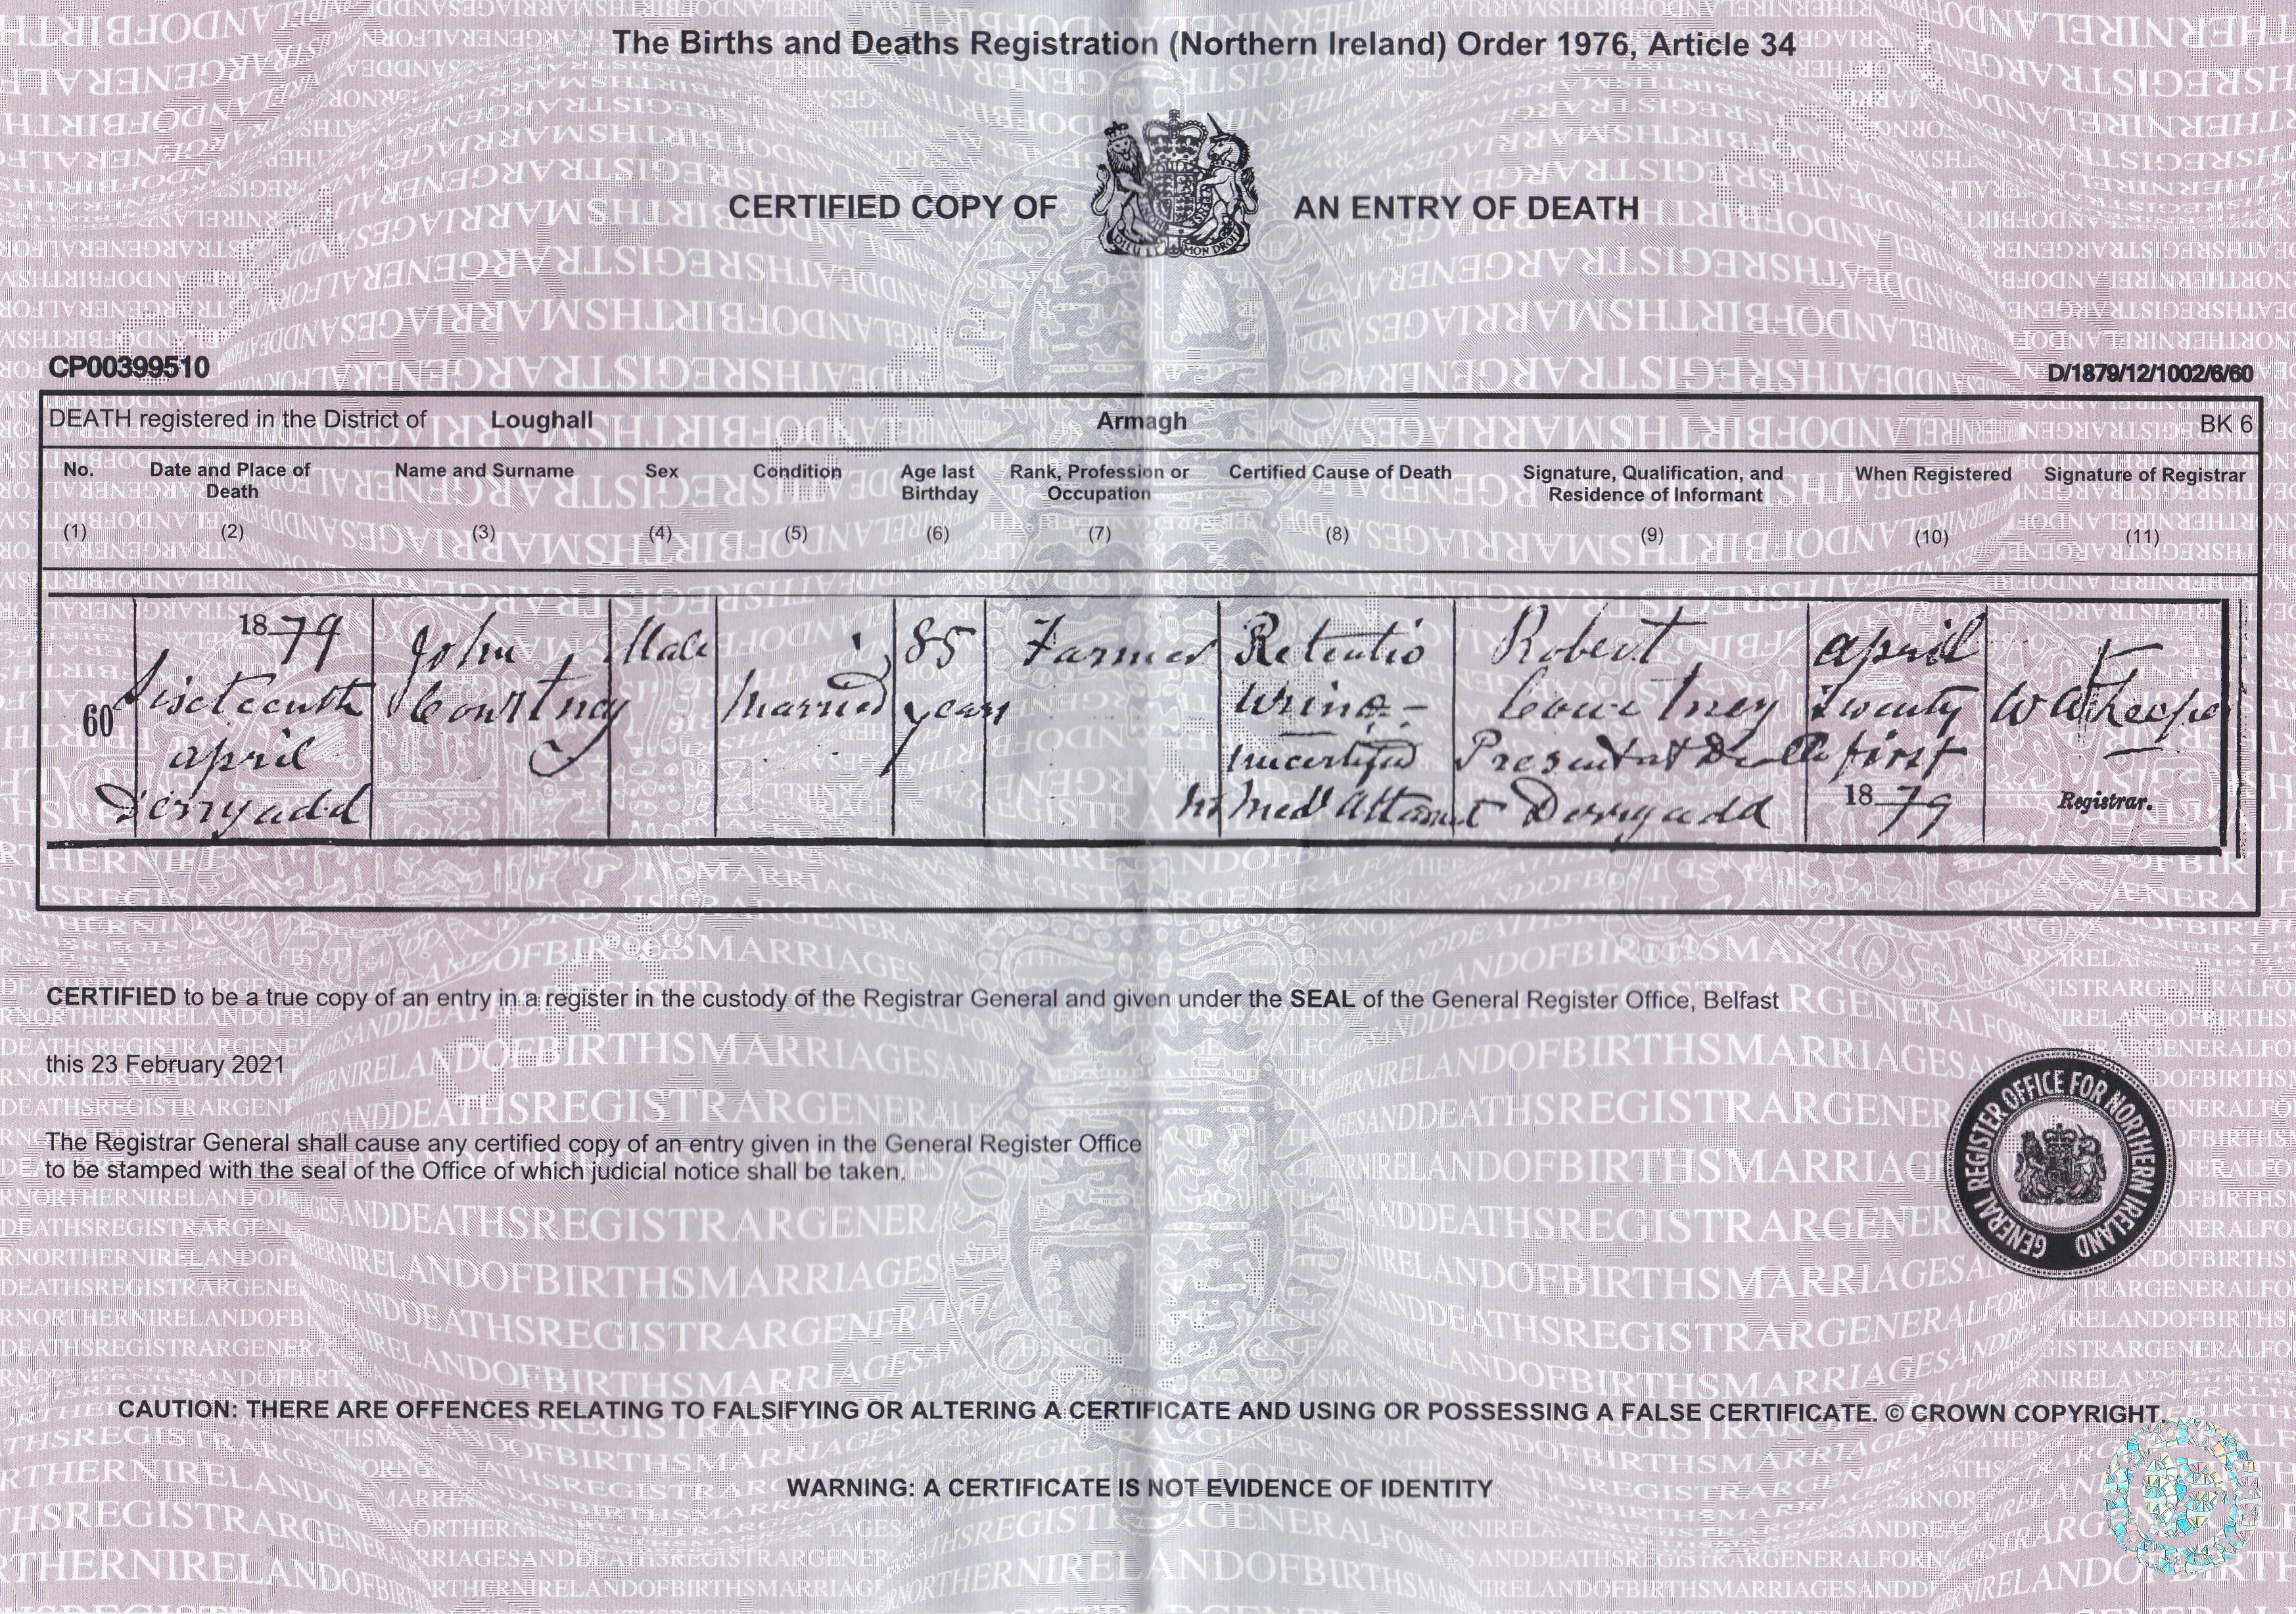 The Births and Deaths Registration (Northern Ireland) Order 1976, Article 34
CERTIFIED COPY OF AN ENTRY OF DEATH
DIEU ET MON DROIT
CP00399510 D/1879/12/1002/6/60
DEATH registered in the District of Loughall Armagh BK 6
No. Date and Place of Death Name and Surname Sex Condition Age last Birthday Rank, Profession or Occupation Certified Cause of Death Signature, Qualification, and Residence of Informant When Registered Signature of Registrar
(1) (2) (3) (4) (5) (6) (7) (8) (9) (10) (11)
60
1879
Sixteenth
april
Derryadd
John
Courtney
Male
Married
85
years
Farmer
Retentio
Urina -
Uncertified
no Med Attant
Robert
Courtney
Present at Death
Derryadd
april
Twenty
first
1879
Registrar.
CERTIFIED to be a true copy of an entry in a register in the custody of the Registrar General and given under the SEAL of the General Register Office, Belfast
this 23 February 2021
The Registrar General shall cause any certified copy of an entry given in the General Register Office
to be stamped with the seal of the Office of which judicial notice shall be taken.
GENERAL REGISTER OFFICE FOR NORTHERN IRELAND
CAUTION: THERE ARE OFFENCES RELATING TO FALSIFYING OR ALTERING A CERTIFICATE AND USING OR POSSESSING A FALSE CERTIFICATE. © CROWN COPYRIGHT.
WARNING: A CERTIFICATE IS NOT EVIDENCE OF IDENTITY